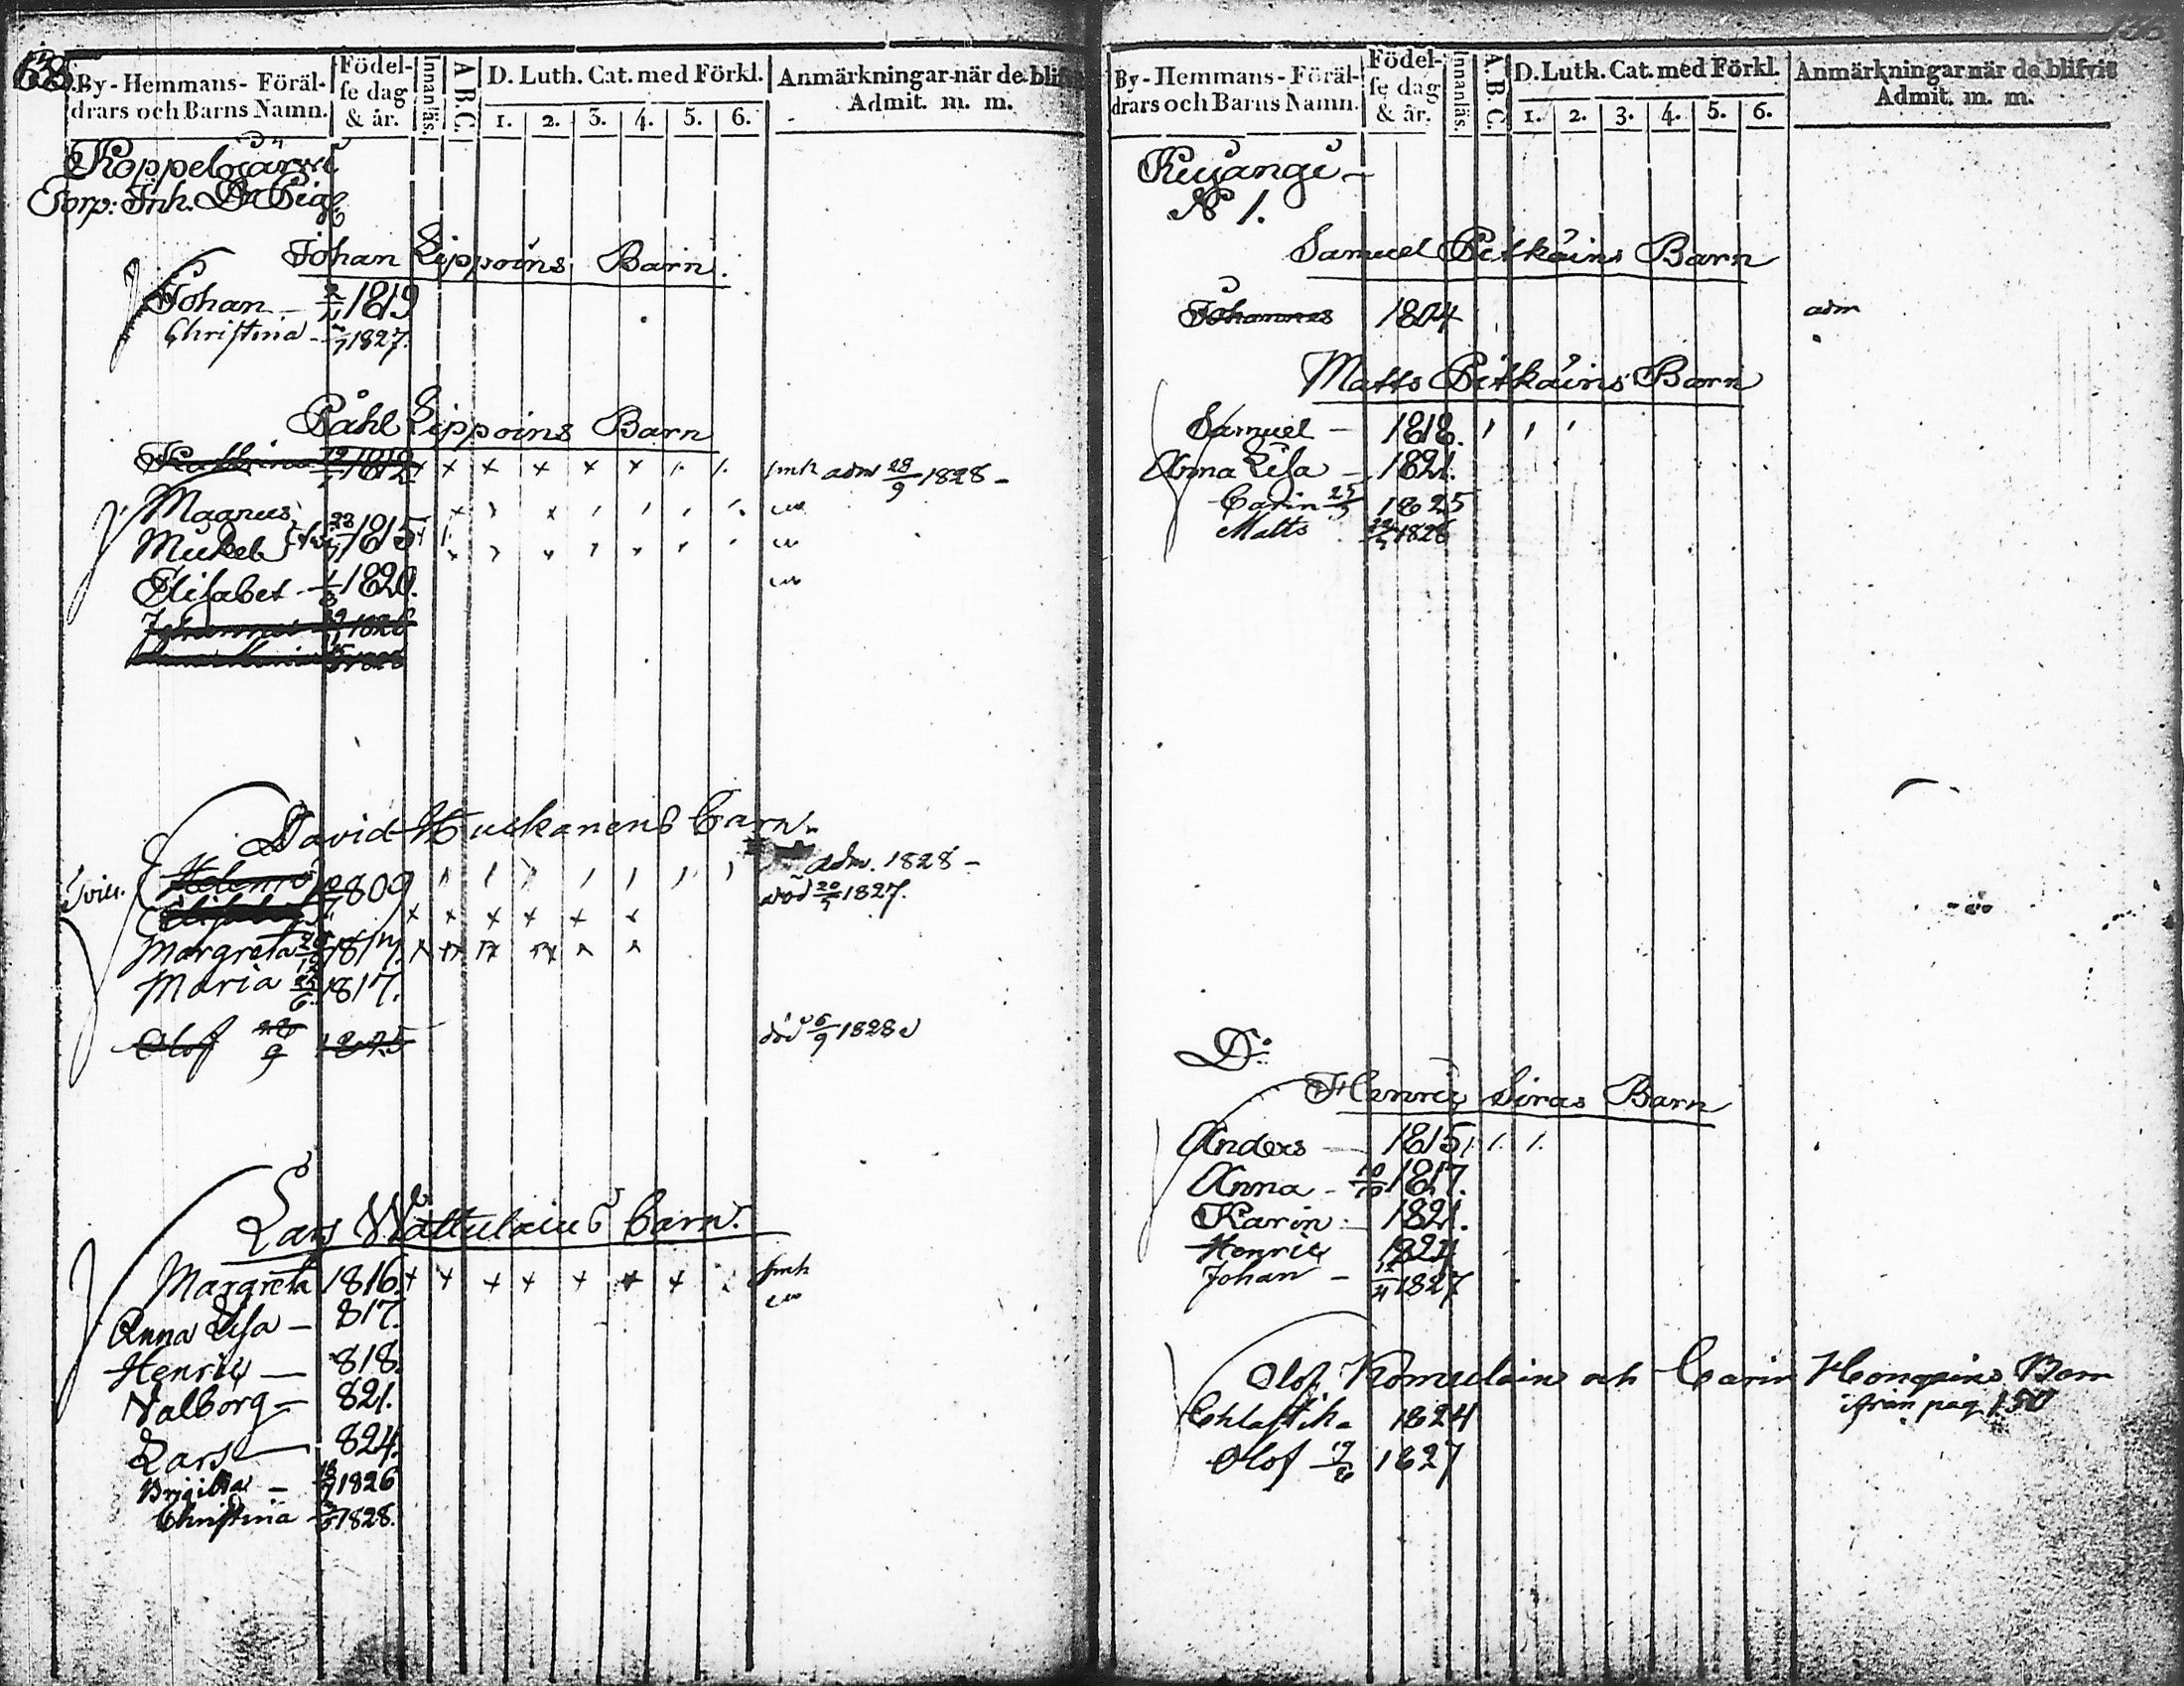 By-Hemmans-Föräl-
drars och Barns Namn.
Födel-
se dag
& år.
Innanläs.
A B C.
D. Luth. Cat. med Förkl.
1. 2. 3. 4. 5. 6.
Anmärkningar när de blif
Admit. m. m.
Torp: Inh.
Johan Lippoins Barn.
Johan 1819
Christina 1827.
Påhl Lippoins Barn
1812 adm 28/9 1828
Magnus
Mickel 1815
Elisabet 1820.
David Huckanens barn.
809 adm. 1828
död 1827.
Margreta
Maria 25/6 1817.
Olof 28/9 1825 död 6/9 1828
Lars Wattulains barn.
Margreta 1816
Anna Lisa 817.
Henric 818.
Valborg 821.
Lars 824.
Brigitta 1826
Christina 1828.
By-Hemmans-Föräl-
drars och Barns Namn.
Födel-
se dag
& år.
Innanläs.
A. B. C.
D. Luth. Cat. med Förkl.
1. 2. 3. 4. 5. 6.
Anmärkningar när de blifvit
Admit. m. m.
N 1.
Samuel Pitkäins Barn
Johannes 1804 adm
Matts Pitkäins Barn
Samuel 1818.
Anna Lisa 1821.
Carin 1825
Matts 1826
Do
Henric Siras Barn
Anders 1815
Anna 1817.
Karin 1821.
Henric 1824
Johan 1827
Olof Romulain och Carin Barn
ifrån pag 150
1824
Olof 1827